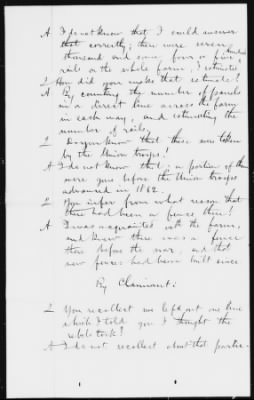 A I do not know that I could answer
that correctly; there were seven
thousand and some four or five hundred
rails on the whole farm, I estimate
Q How did you make that estimate?
A By counting the number of panels
in a direct line across the farm
in each way, and estimating the
number of rails.
Q Do you know that these were taken
by the Union troops?
A I do not know that; a portion of them
were gone before the Union troops
advanced in 1862.
Q You infer from what reason that
there had been a fence there?
A I was acquainted with the farm,
and knew there was a fence
there before the war, and that
new fences had been built since
By Claimant:
Q You recollect we left out one line
which I told you I thought the
rebels took?
A I do not recollect about that partic-